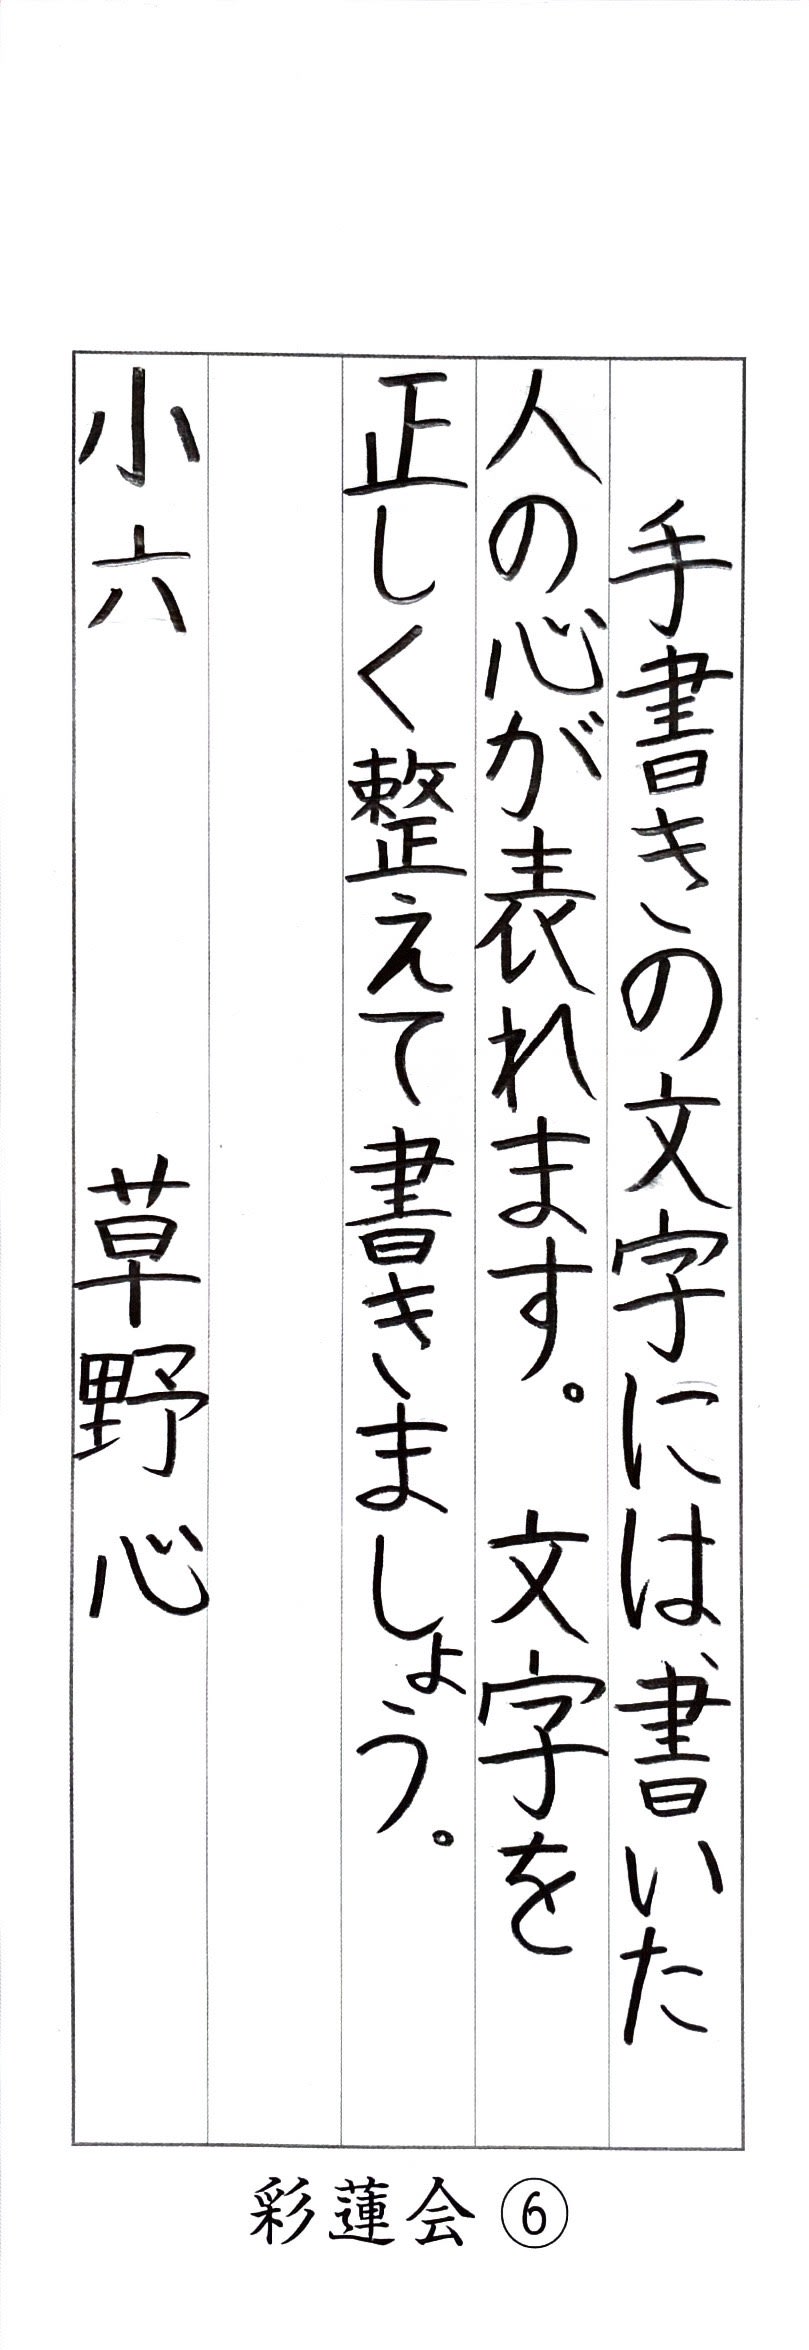 手書きの文字には書いた
人の心が表れます。文字を
正しく整えて書きましょう。
小六 草野心
彩蓮会⑥